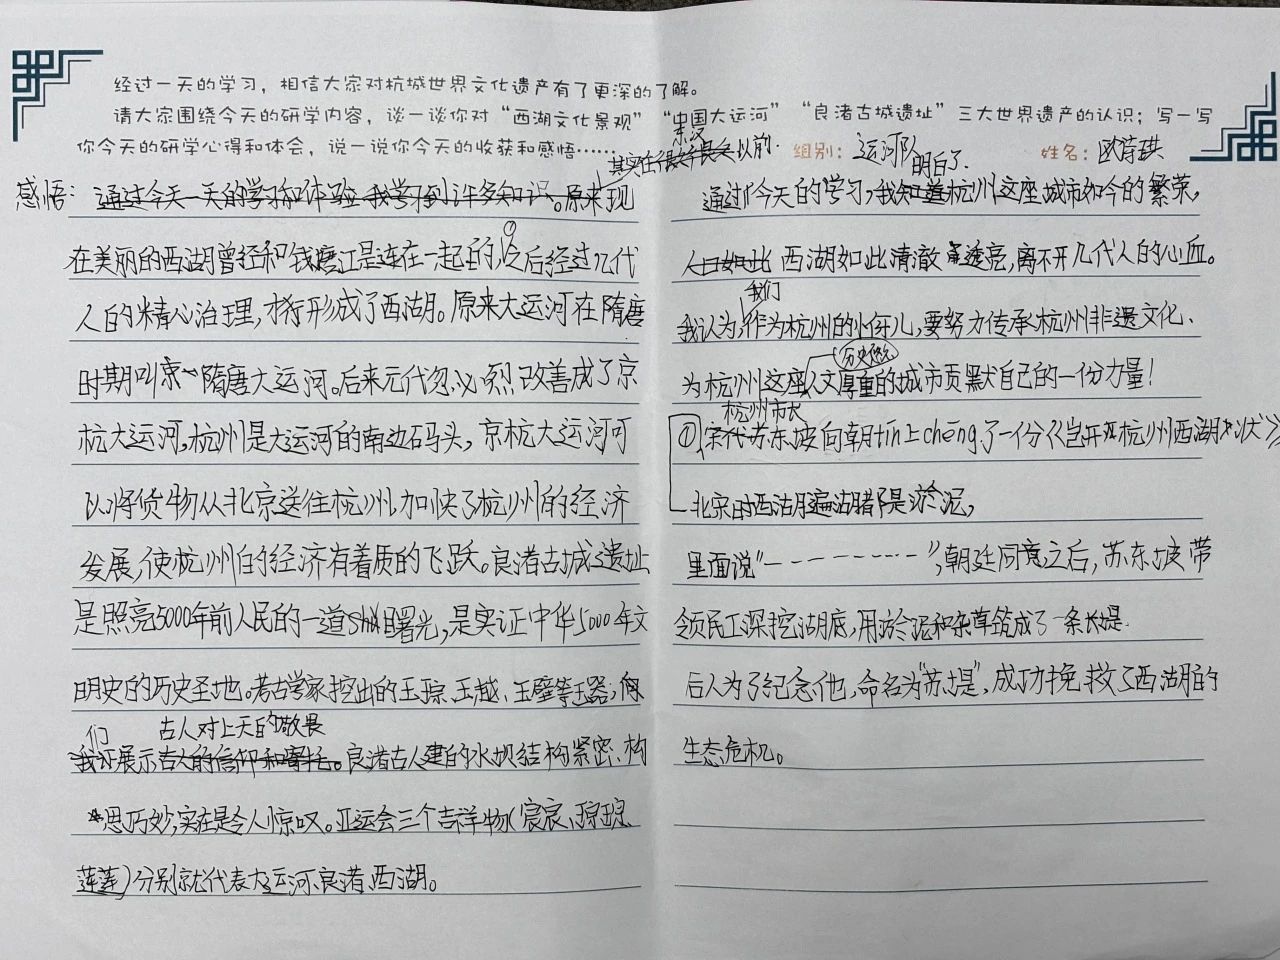 经过一天的学习，相信大家对杭城世界文化遗产有了更深的了解。
请大家围绕今天的研学内容，谈一谈你对“西湖文化景观”“中国大运河”“良渚古城遗址”三大世界遗产的认识；写一写
你今天的研学心得和体会，说一说你今天的收获和感悟……
组别：运河队
姓名：欧蒔琪
东汉
其实在很久很久以前.
感悟：通过今天一天的学习和体验我学到许多知识。原来现
①
在美丽的西湖曾经和钱塘江是连在一起的，之后经过几代
人的精心治理，才形成了西湖。原来大运河在隋唐
时期叫京 隋唐大运河。后来元代忽必烈改善成了京
杭大运河，杭州是大运河的南边码头，京杭大运河可
以将货物从北京送往杭州，加快了杭州的经济
发展，使杭州的经济有着质的飞跃。良渚古城遗址
是照亮5000年前人民的一道shu曙光，是实证中华5000年文
明史的历史圣地。考古学家挖出的玉琮、玉越、玉璧等玉器，他
们 古人对上天的敬畏
我还展示古人的信仰和 。良渚古人建的水坝结构紧密、构
思巧妙，实在是令人惊叹。亚运会三个吉祥物（宸宸、琮琮、
莲莲）分别就代表大运河、良渚、西湖。
明白了
通过了今天的学习，我知道杭州这座城市如今的繁荣，
人口如此 西湖如此清澈 透亮，离不开几代人的心血。
我们
我认为，作为杭州的小伢儿，要努力传承杭州非遗文化、
历史悠久
为杭州这座人文厚重的城市贡默自己的一份力量！
杭州市长
①宋代苏东坡向朝tin上cheng了一份《岂开 杭州西湖 状》
北宋时西湖遍湖都是淤泥，
里面说“---------”，朝廷同意之后，苏东坡带
领民工深挖湖底，用淤泥和杂草筑成了一条长堤.
后人为了纪念他，命名为“苏堤”，成功挽救了西湖的
生态危机。